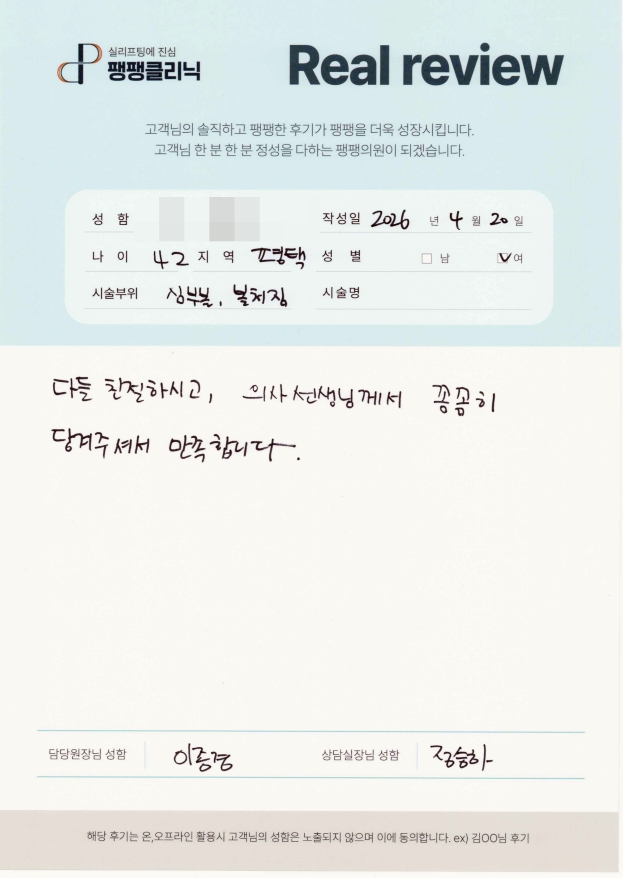 실리프팅에 진심
팽팽클리닉
Real review
고객님의 솔직하고 팽팽한 후기가 팽팽을 더욱 성장시킵니다.
고객님 한 분 한 분 정성을 다하는 팽팽의원이 되겠습니다.
성 함 작성일 2026 년 4 월 20 일
나 이 42 지 역 평택 성 별 남 여
시술부위 심부볼, 볼처짐 시술명
다들 친절하시고, 의사선생님께서 꼼꼼히
당겨주셔서 만족합니다.
담당원장님 성함 이종경 상담실장님 성함 정승하
해당 후기는 온,오프라인 활용시 고객님의 성함은 노출되지 않으며 이에 동의합니다. ex) 김OO님 후기